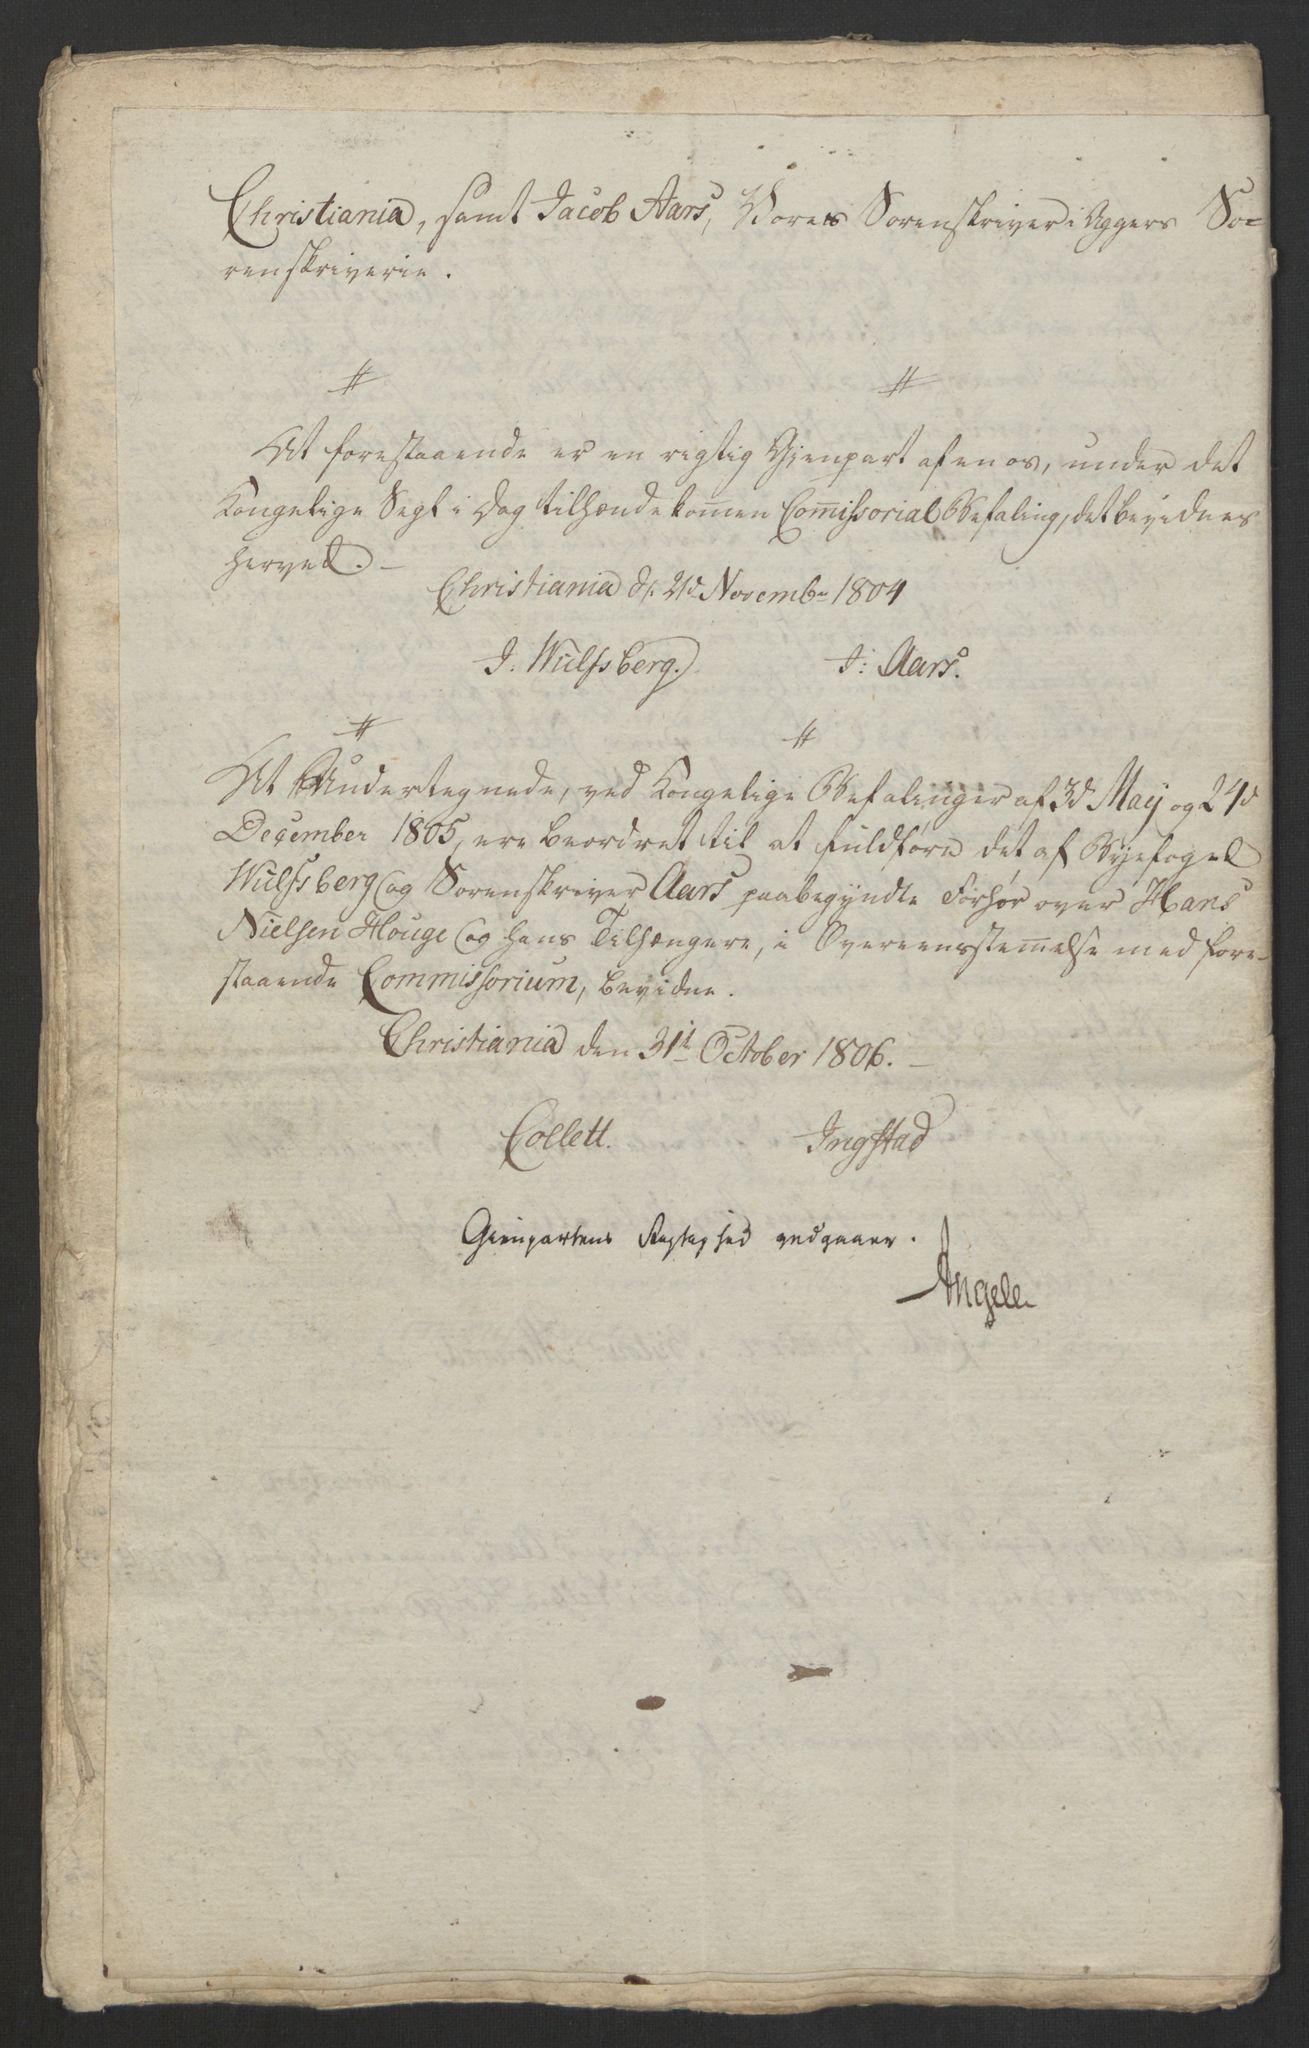 Christiania, samt Jacob Aars, Vores Sorenskriver i Aggers So=
renskriverie.
# #
At forestaaende er en rigtig Gjenpart af en os, under det
Kongelige Segl i Dag tilhændekom̄en Com̄issorial Befaling, det bevidnes
herved. –
Christiania d. 21de Novembr 1804
J. Wulfsberg. J: Aars.
# #
At Undertegnede, ved Kongelige Befalinger af 3d May og 24d
December 1805, ere beordret til at fuldføre det af Byefoged
Wulfsberg og Sorenskriver Aars paabegyndte Forhør over Hans
Nielsen Houge og hans Tilhængere, i Overeensstem̄else med fore-
staaende Commissorium, bevidne.
Christiania den 31t October 1806. –
Collett. Ingstad
Gienpartens Rigtighed vedgaaer.